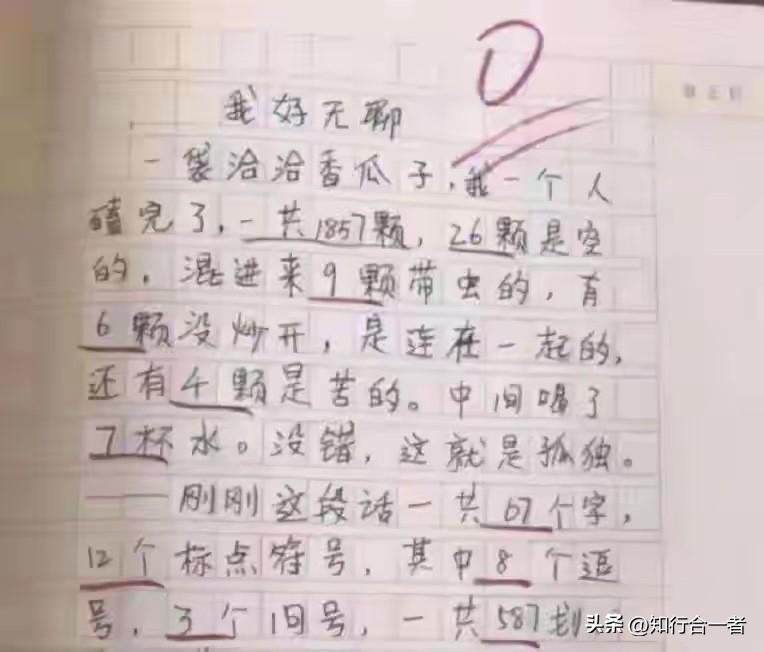 0
我好无聊
一袋洽洽香瓜子，我一个人
嗑完了，一共1857颗，26颗是空
的，混进来9颗带虫的，有
6颗没炒开，是连在一起的，
还有4颗是苦的。中间喝了
7杯水。没错，这就是孤独。
——刚刚这段话一共67个字，
12个标点符号，其中8个逗
号，3个间号，一共587划
头条 @知行合一者